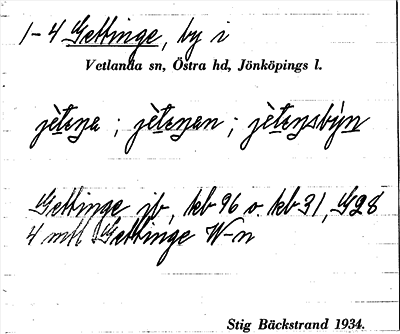 1-4 Gettinge, by i
Vetlanda sn, Östra hd, Jönköpings l.
jèteŋa ; jèteŋan ; jèteŋsbýn
Gettinge jb, kb 96 o. kb 31, G28
4 mtl Gettinge W-n
Stig Bäckstrand 1934.